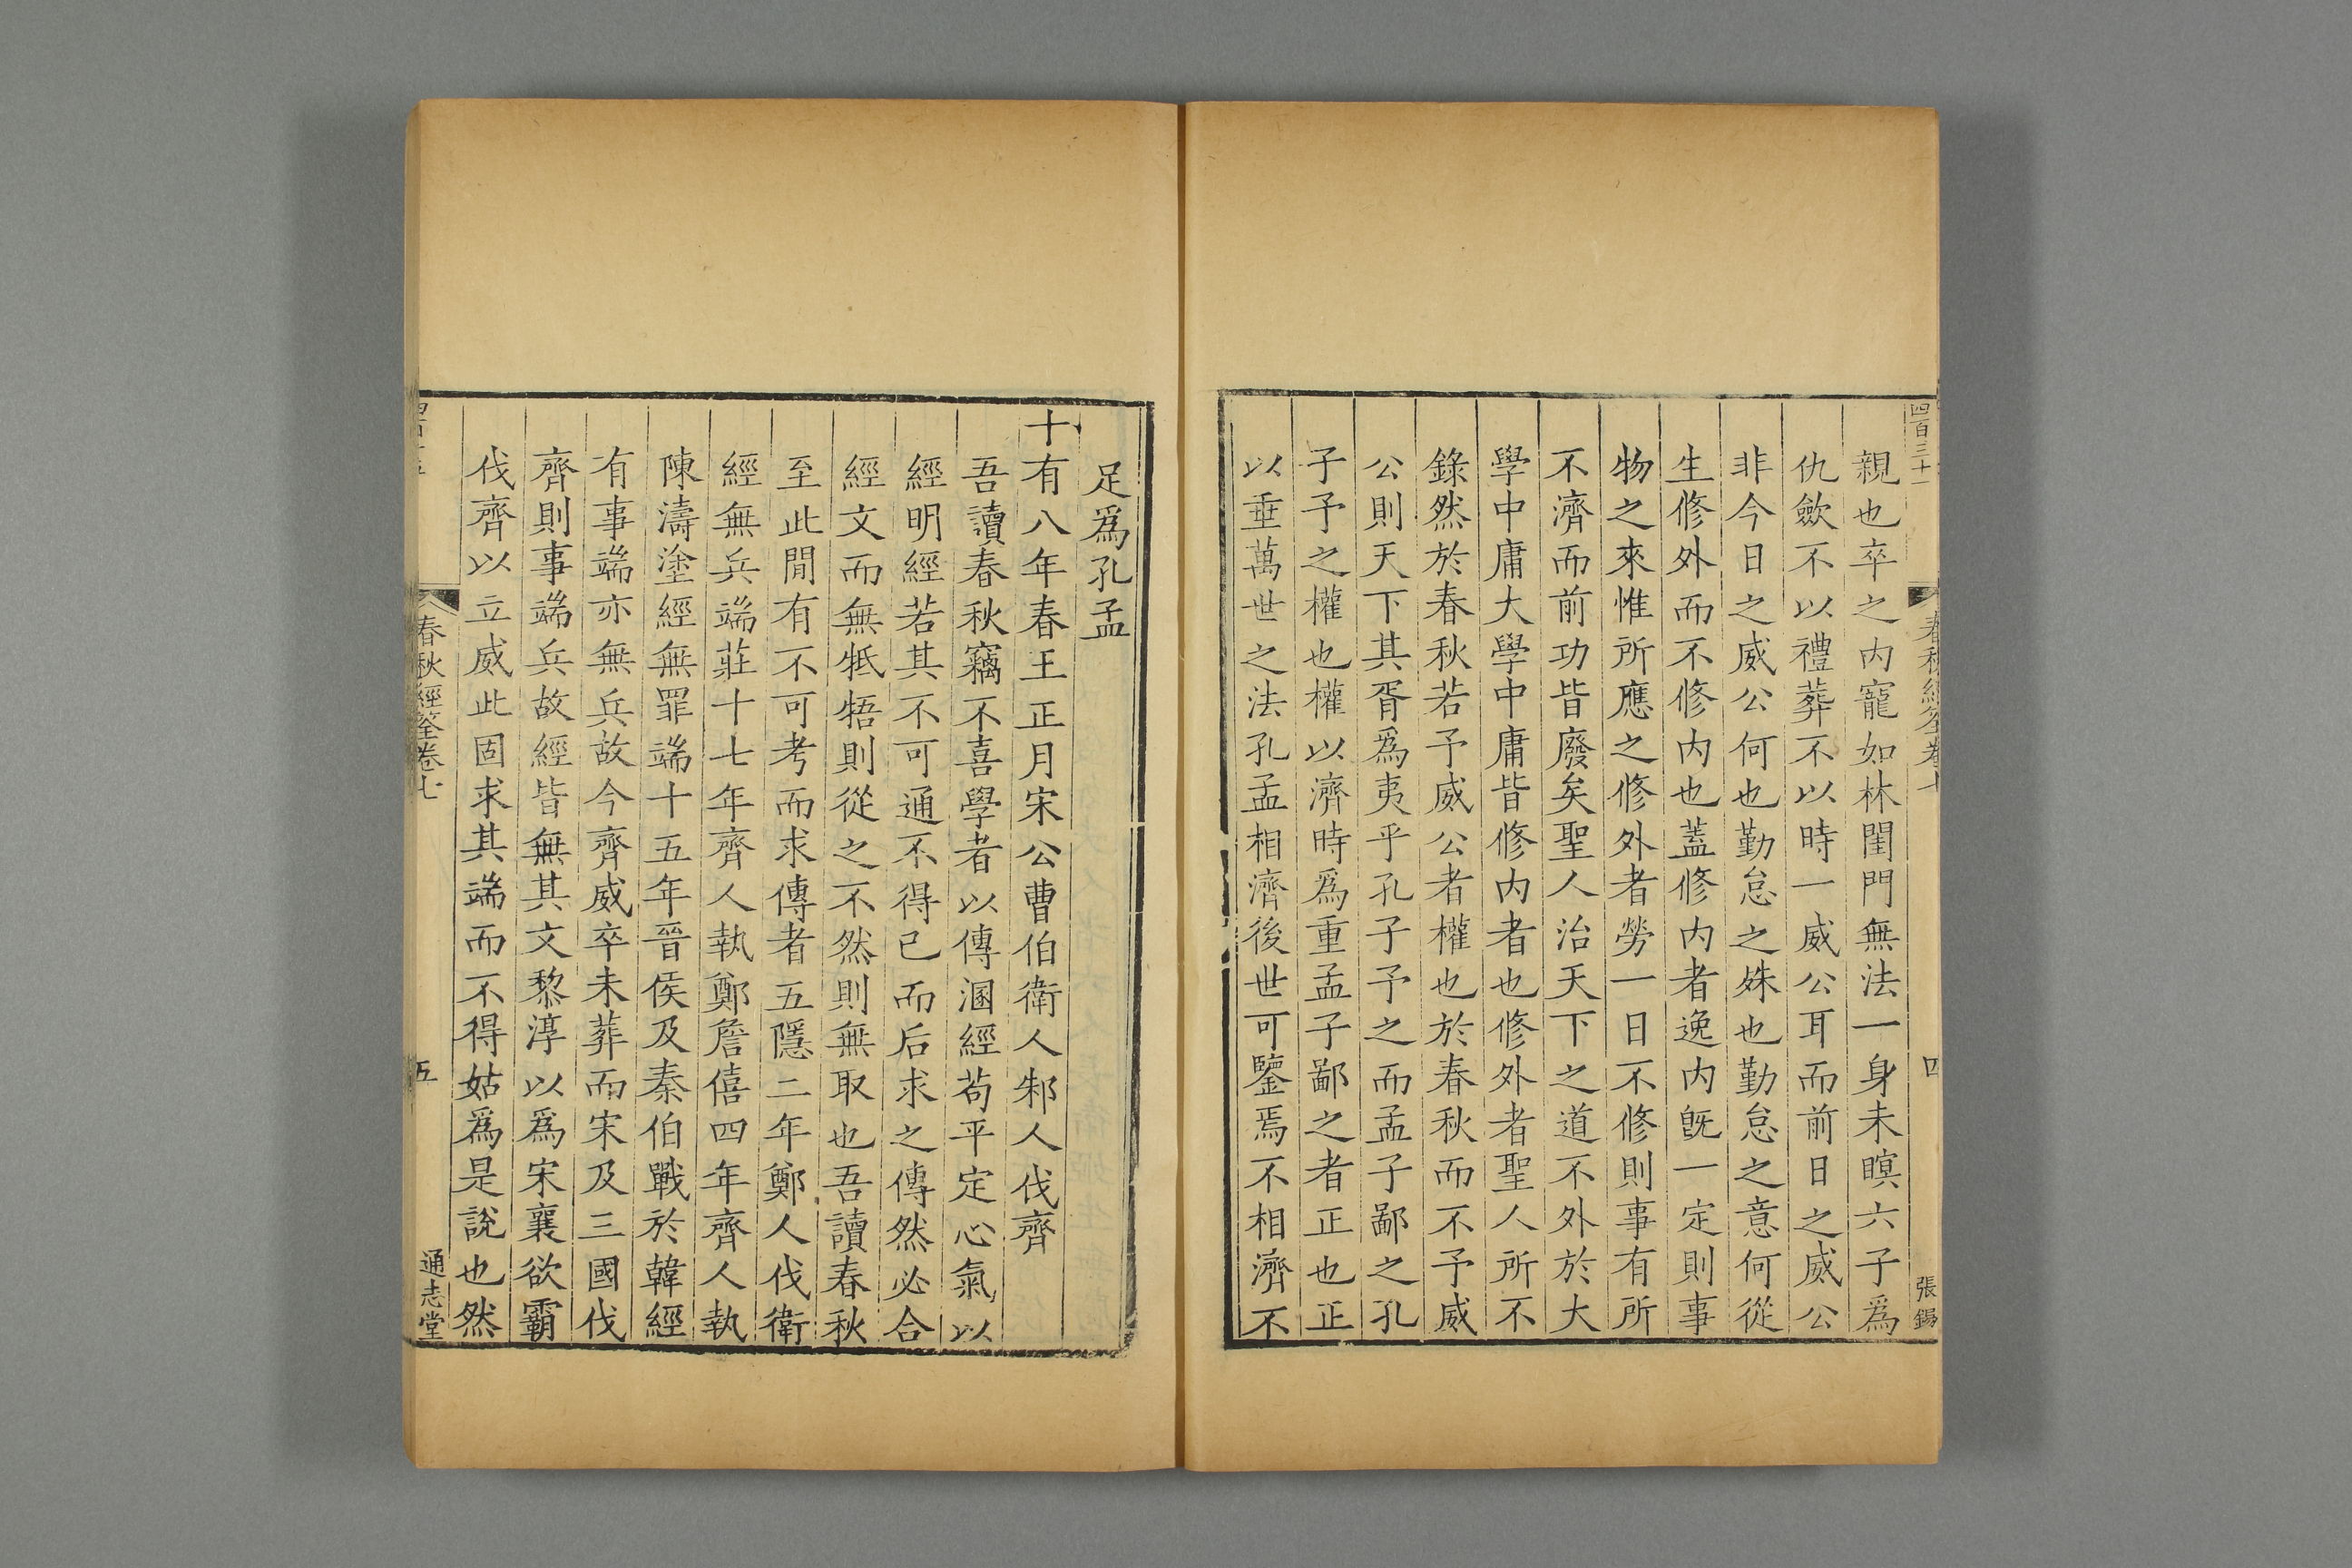 四百三十一
春秋經筌卷七
四
張錫
親也卒之内寵如林閨門無法一身未瞑六子爲
仇歛不以禮葬不以時一威公耳而前日之威公
非今日之威公何也勤怠之殊也勤怠之意何從
生修外而不修内也蓋修内者逸内旣一定則事
物之來惟所應之修外者勞一日不修則事有所
不濟而前功皆廢矣聖人治天下之道不外於大
學中庸大學中庸皆修内者也修外者聖人所不
錄然於春秋若予威公者權也於春秋而不予威
公則天下其胥爲夷乎孔子予之而孟子鄙之孔
子予之權也權以濟時爲重孟子鄙之者正也正
以垂萬世之法孔孟相濟後世可鑒焉不相濟不
足爲孔孟
十有八年春王正月宋公曹伯衛人邾人伐齊
吾讀春秋竊不喜學者以傳溷經苟平定心氣以
經明經若其不可通不得已而后求之傳然必合
經文而無牴牾則從之不然則無取也吾讀春秋
至此間有不可考而求傳者五隱二年鄭人伐衛
經無兵端莊十七年齊人執鄭詹僖四年齊人執
陳濤塗經無罪端十五年晉侯及秦伯戰於韓經
有事端亦無兵故今齊威卒未葬而宋及三國伐
齊則事端兵故經皆無其文黎淳以爲宋襄欲霸
伐齊以立威此固求其端而不得姑爲是說也然
春秋經筌卷七
五
通志堂